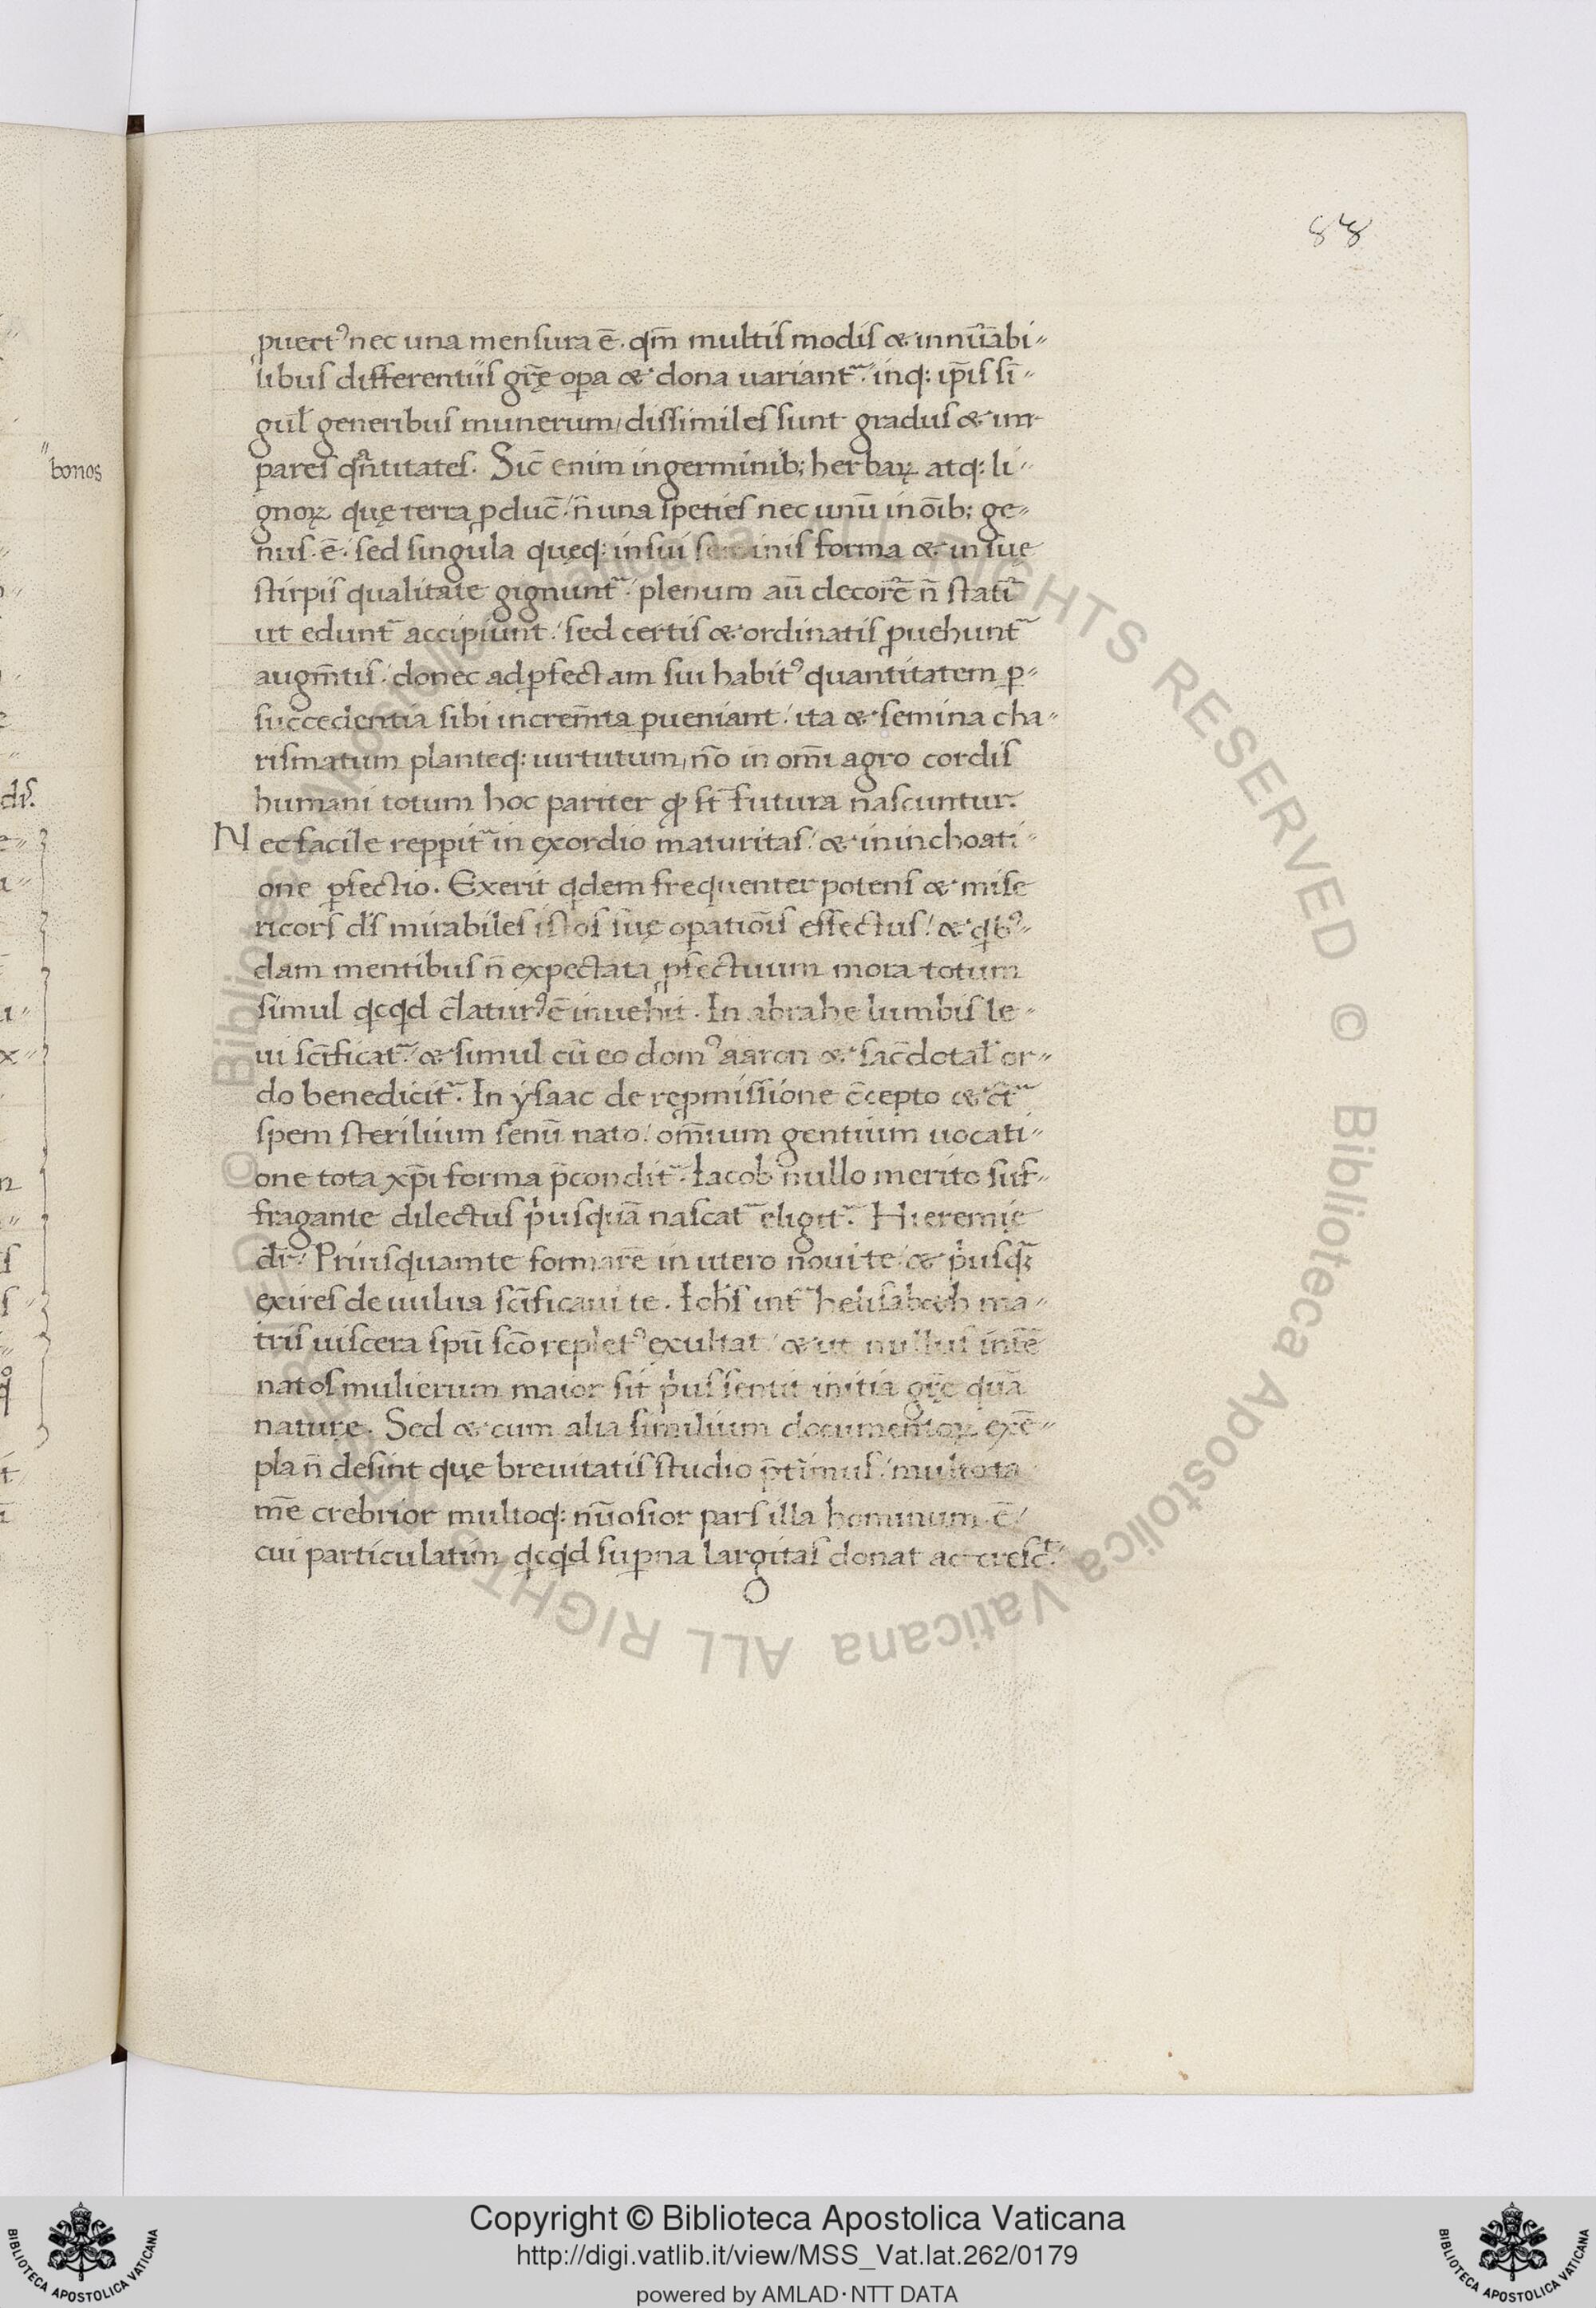 88
bonos
puect⁹ nec una mensura ē. qm̄ multis modis & innūabi-
libus differentiis grę̄ opa & dona uariant᷑. inq: ip̄is sī-
gul̄ generibus munerum / dissimiles sunt gradus & im
pares qn̄titates. Sic̄ enim in germinib; herbaꝝ atq: li-
gnoꝝ quę terra ꝓduc̄ / n̄ una speties nec unū in oīb; ge-
nus ē. sed singula quęq: in sui seminis forma & in suę
stirpis qualitate gignunt᷑. plenum aū decorē n̄ statī
ut edunt᷑ accipiunt / sed certis & ordinatis ꝓuehunt᷑
augm̄tis. donec ad ꝑfectam sui habit⁹ quantitatem ꝑ-
succedentia sibi increm̄ta ꝑueniant / ita & semina cha-
rismatum planteq: uirtutum, nō in om̄i agro cordis
humani totum hoc pariter qđ st̄ futura nascuntur.
Nec facile repꝑit᷑ in exordio maturitas / & in inchoati-
one ꝑfectio. Exerit qdem frequenter potens & mise
ricors ds̄ mirabiles istos suę oꝑatiōis effectus / & qb⁹-
dam mentibus n̄ expectata ꝓfectuum mora totum
simul qcqd c̄latur⁹ ē inuehit. In abrahe lumbis le-
ui sc̄ificat᷑ / & simul cū eo dom⁹ aaron & sac̄dotal̄ or-
do benedicit᷑. In ysaac de reꝓmissione c̄cepto & c̄t᷑
spem sterilium senū nato / om̄ium gentium uocati-
one tota xp̄i forma p̄condit᷑. Iacob nullo merito suf-
fragante dilectus p̓usquā nascat᷑ eligit᷑. Hieremię
dr̄ / Priusquam te formarē in utero noui te / & p̓usq̄;
exires de uulua sc̄ificaui te. Ioh̄s int᷑ helisabeth ma-
tris uiscera spū scō replet⁹ exultat / & ut nullus int̄
natos mulierum maior sit p̓us sentit initia grę̄ quā
naturę. Sed & cum alia similium documentoꝝ exē-
pla n̄ desint que breuitatis studio p̄t̄imus / multo ta
mē crebrior multoq: nūosior pars illa hominum ē /
cui particulatim qcqd suꝑna largitas donat accresc᷑t.